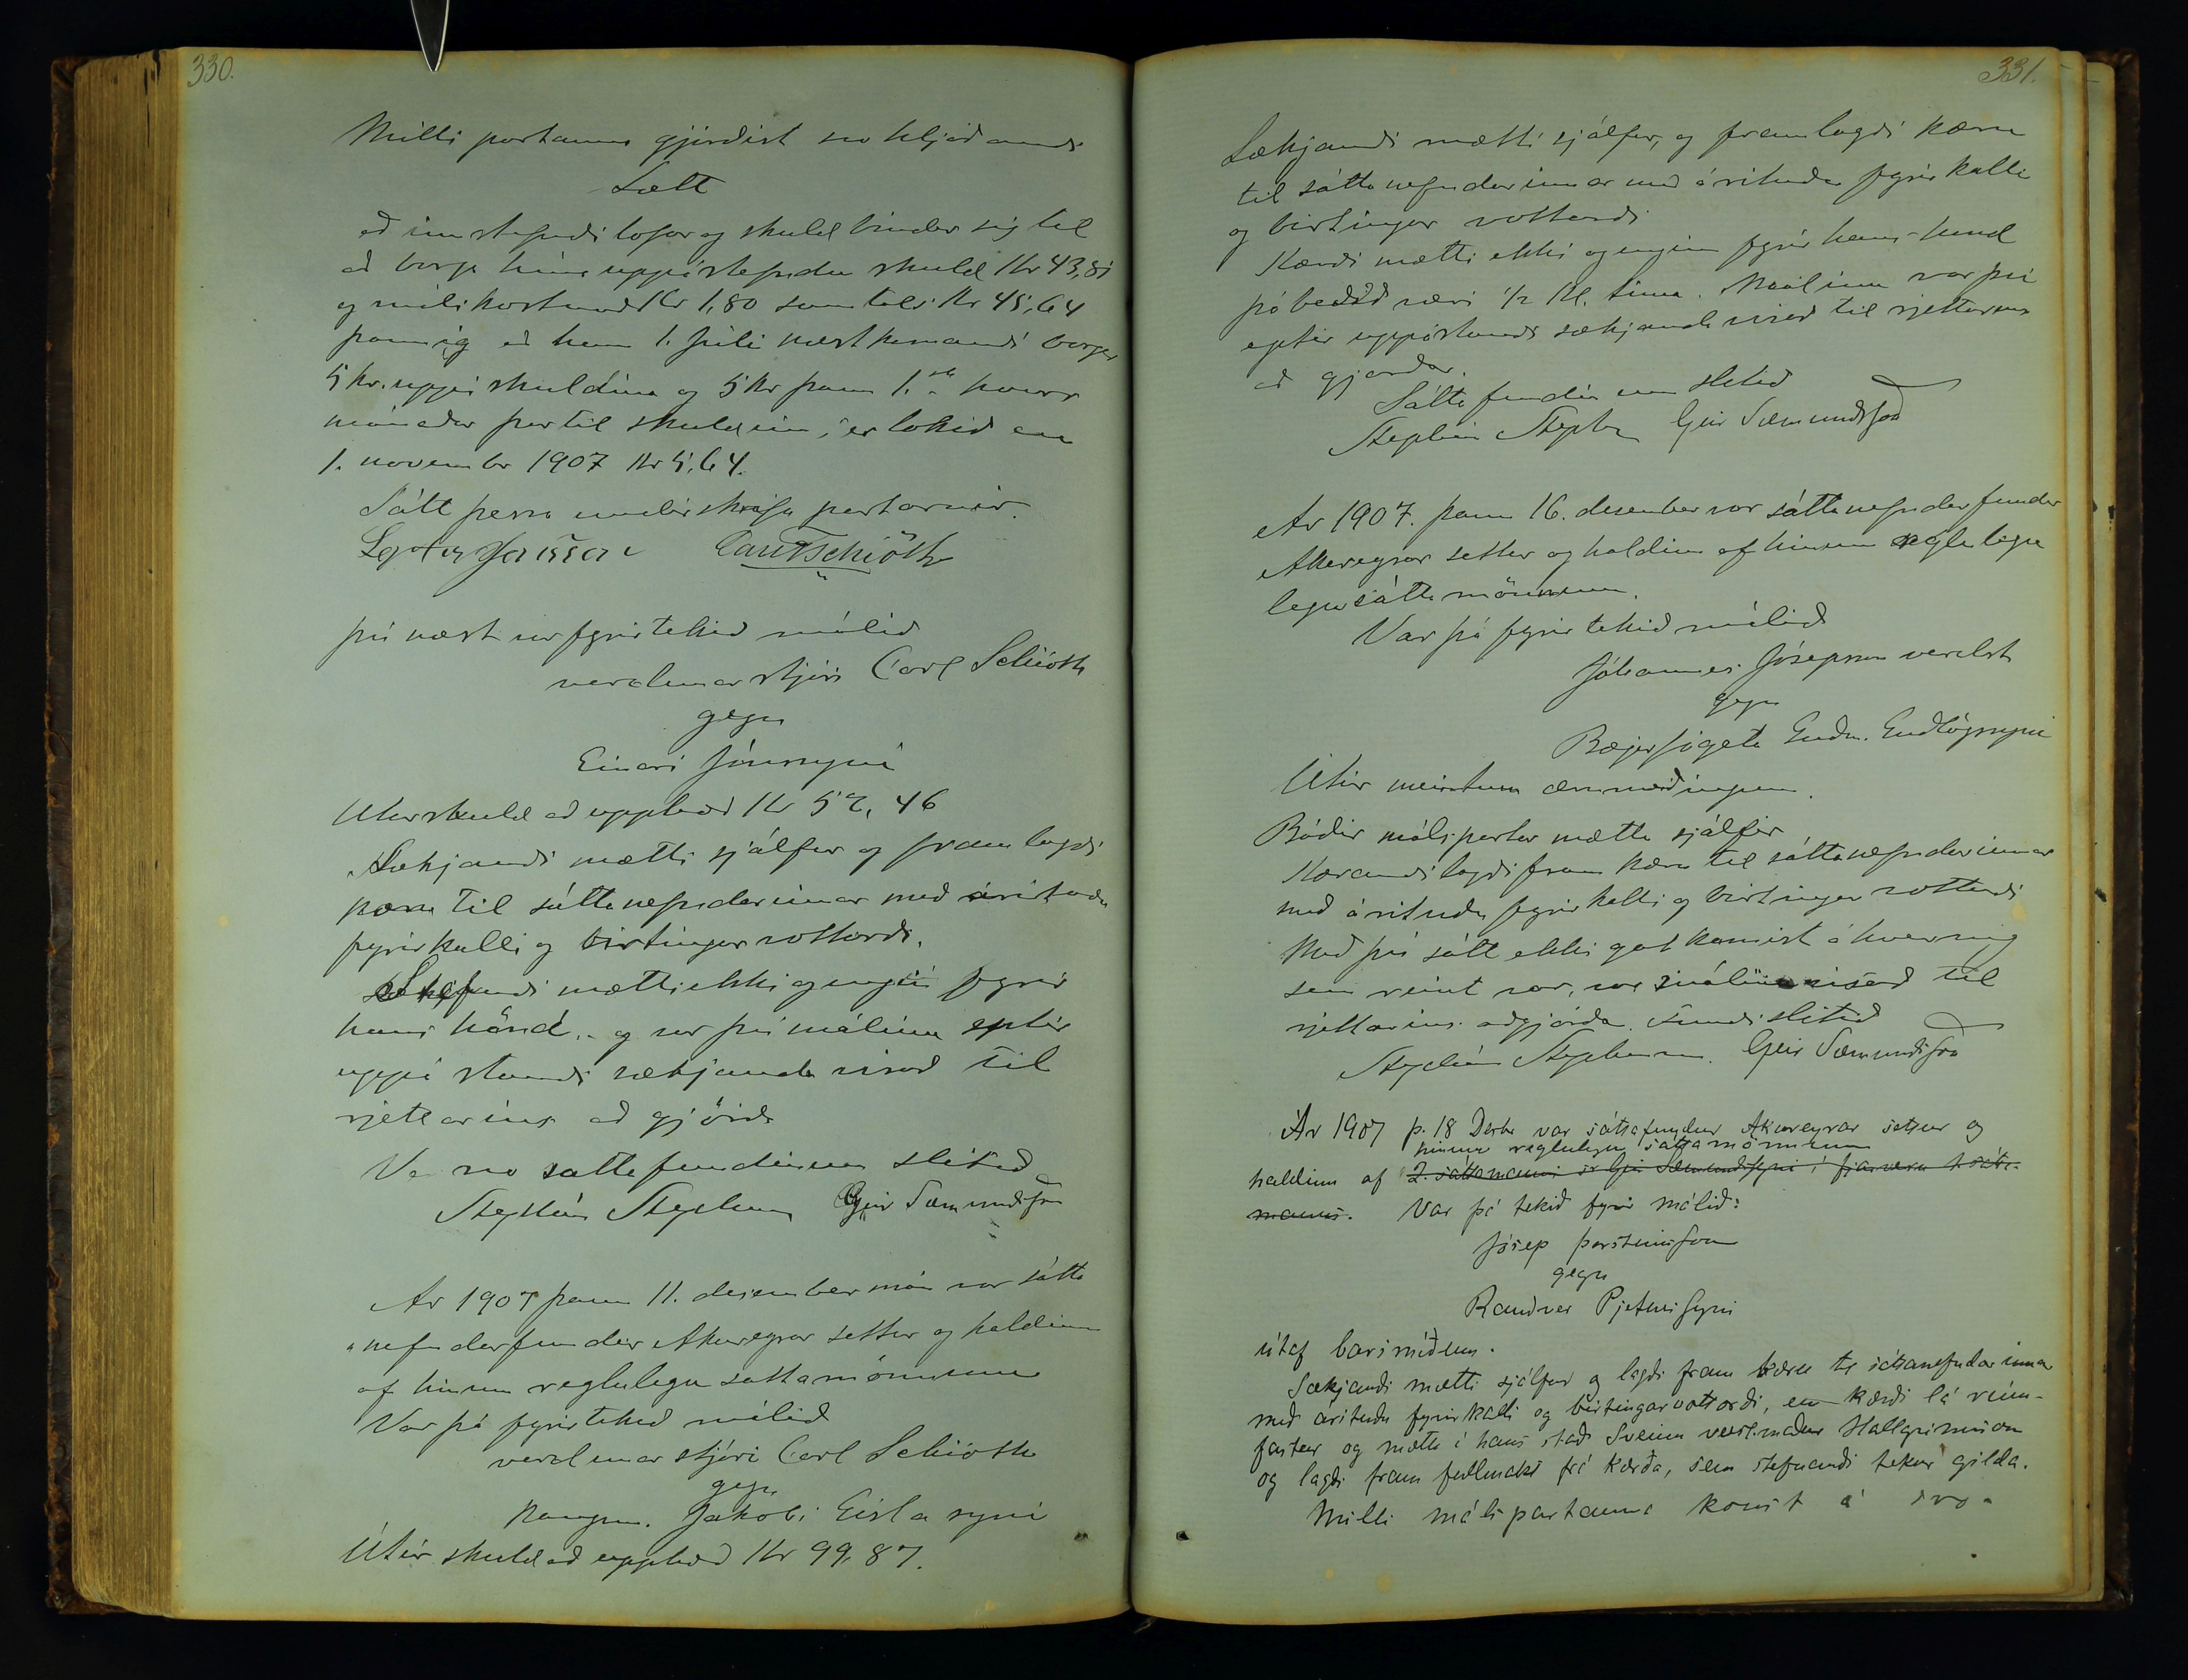 330.
Milli partanna gjörðist svo hljóðandi
Sætt
að innstefndi lofar og skuldbindur sig til
að borga hina uppástefndu skuld Kr 43,8
og málskostnað Kr 1,80 samtals Kr 45,64
þannig að hann 1. júlí næstkomandi borgar
5 kr. uppí skuldina og 5 kr þann 1. hvers
mánaðar þar til skuldin er lokið en
1. november 1907 Kr 5,64.
Sátt þessa undirskrifa partarnir.
Carl Schiöth
því næst var fyrirtekið málið
verslunarstjóri Carl Schiöth
gegn
Einari Jónssyni
Útaf skuld að upphæð Kr 52,46
Sækjandi mætti sjálfur og framlagði
kæru til sáttanefndarinnar með árituðu
fyrirkalli og birtingarvottorði.
Stefndi mætti ekki og enginn fyrir
hans hönd. og var því málinu eptir
uppástandi sækjanda vísað til
rjettarins aðgjörða
Var svo sáttafundinum slitið
Stephán Stephensen Geir Sæmundsson
Ár 1907 þann 11. desembermán var sátta
nefndarfundur Akureyrar settur og haldinn
af hinum reglulegu sáttamönnum
Var þá fyrirtekið málið
verslunarstjóri Carl Schiöth
gegn
kaupm. Jakobi Gíslasyni
Útaf skuld að upphæð Kr 99,87.
331.
Sækjandi mætti sjálfur, og framlagði kæru
til sáttanefndarinnar með árituðu fyrirkalli
og birtingar vottorði
Kærði mætti ekki og enginn fyrir hans hönd
þó beðið væri 1/2 kl. tíma. Málinu var því
eptir uppástandi sækjanda vísað til rjettarins
aðgjorðar.
Sáttafundinum slitið
Stephán Stephensen Geir Sæmundsson
Ár 1907. þann 16. desember var sáttanefndarfundur
Akureyrar settur og haldinn af hinum reglulegu
legu sáttamönnum.
Var þá fyrirtekið málið
Jóhannes Jósepsson verslst
gegn
Bæjarfógeta Guðm. Guðlögssyni
Útaf meintum ærumeiðingum.
Báðir málspartar mættu sjálfir
Kærandi lagði fram kæru til sáttanefndarinnar
með árituðu fyrirkalli og birtingar vottorði
Með því sátt ekki gat komist á hvernig
sem reint var, var málinu vísað til
rjettarins aðgjörða. Fundi slitið
Stephán Stephensen. Geir Sæmundsson
Ár 1907 þ. 18 Desbr var sáttafundur Akureyrar settur og
hinum reglulegu sáttamönnum
haldinn af 2. sáttamanni sr Geir Sæmundssyni í fjarveru 1. sátta-
manns. Var þá tekið fyrir málið:
Jósep Þorsteinsson
gegn
Randver Pjeturssyni
útaf barsmíðum.
Sækjandi mætti sjálfur og lagði fram kæru til sáttanefndarinnar
með árituðu fyrirkalli og birtingarvottorði, en kærði lá rúm-
fastur og mætti í hans stað Sveinn verslmaður Hallgrímsson
og lagði fram fullmakt frá kærða, sem stefnandi tekur gilda.
Milli málspartanna komst á svo-